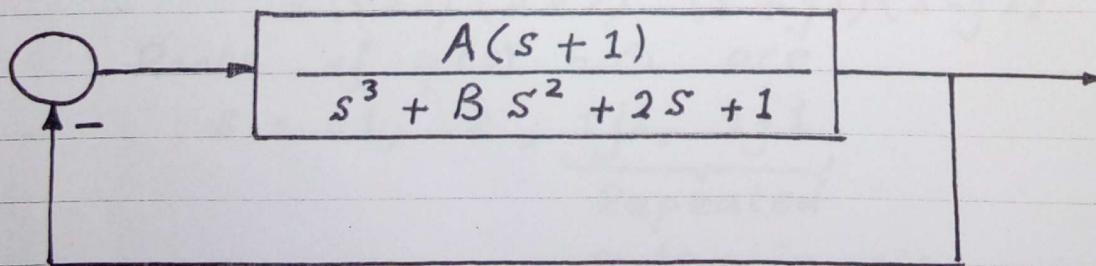 A(s + 1)
s³ + B s² + 2s + 1
−